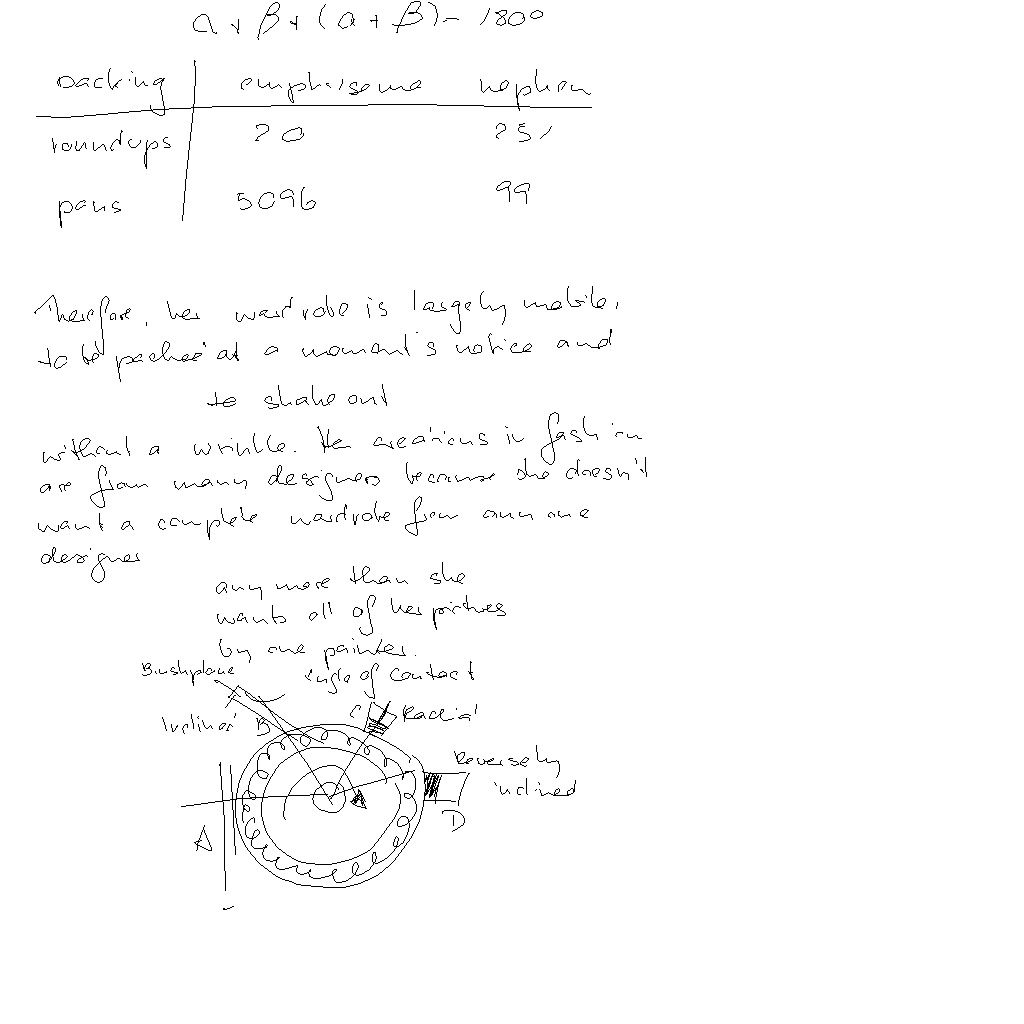 α + β + (α + β) = 180°
packing emphysema nephew
roundups 20 251
pans 5096 99
Therefore, her wardrobe is largely mobile,
to be packed at a moment's notice and
to shake out
without a wrinkle. Her creations in fashion
are from many designers because she doesn't
want a complete wardrobe from any one
designer
any more than she
wants all of her pictures
by one painter.
Brushplane Angle of contact
Inclined B C Radial
Reversely
inclined
A D